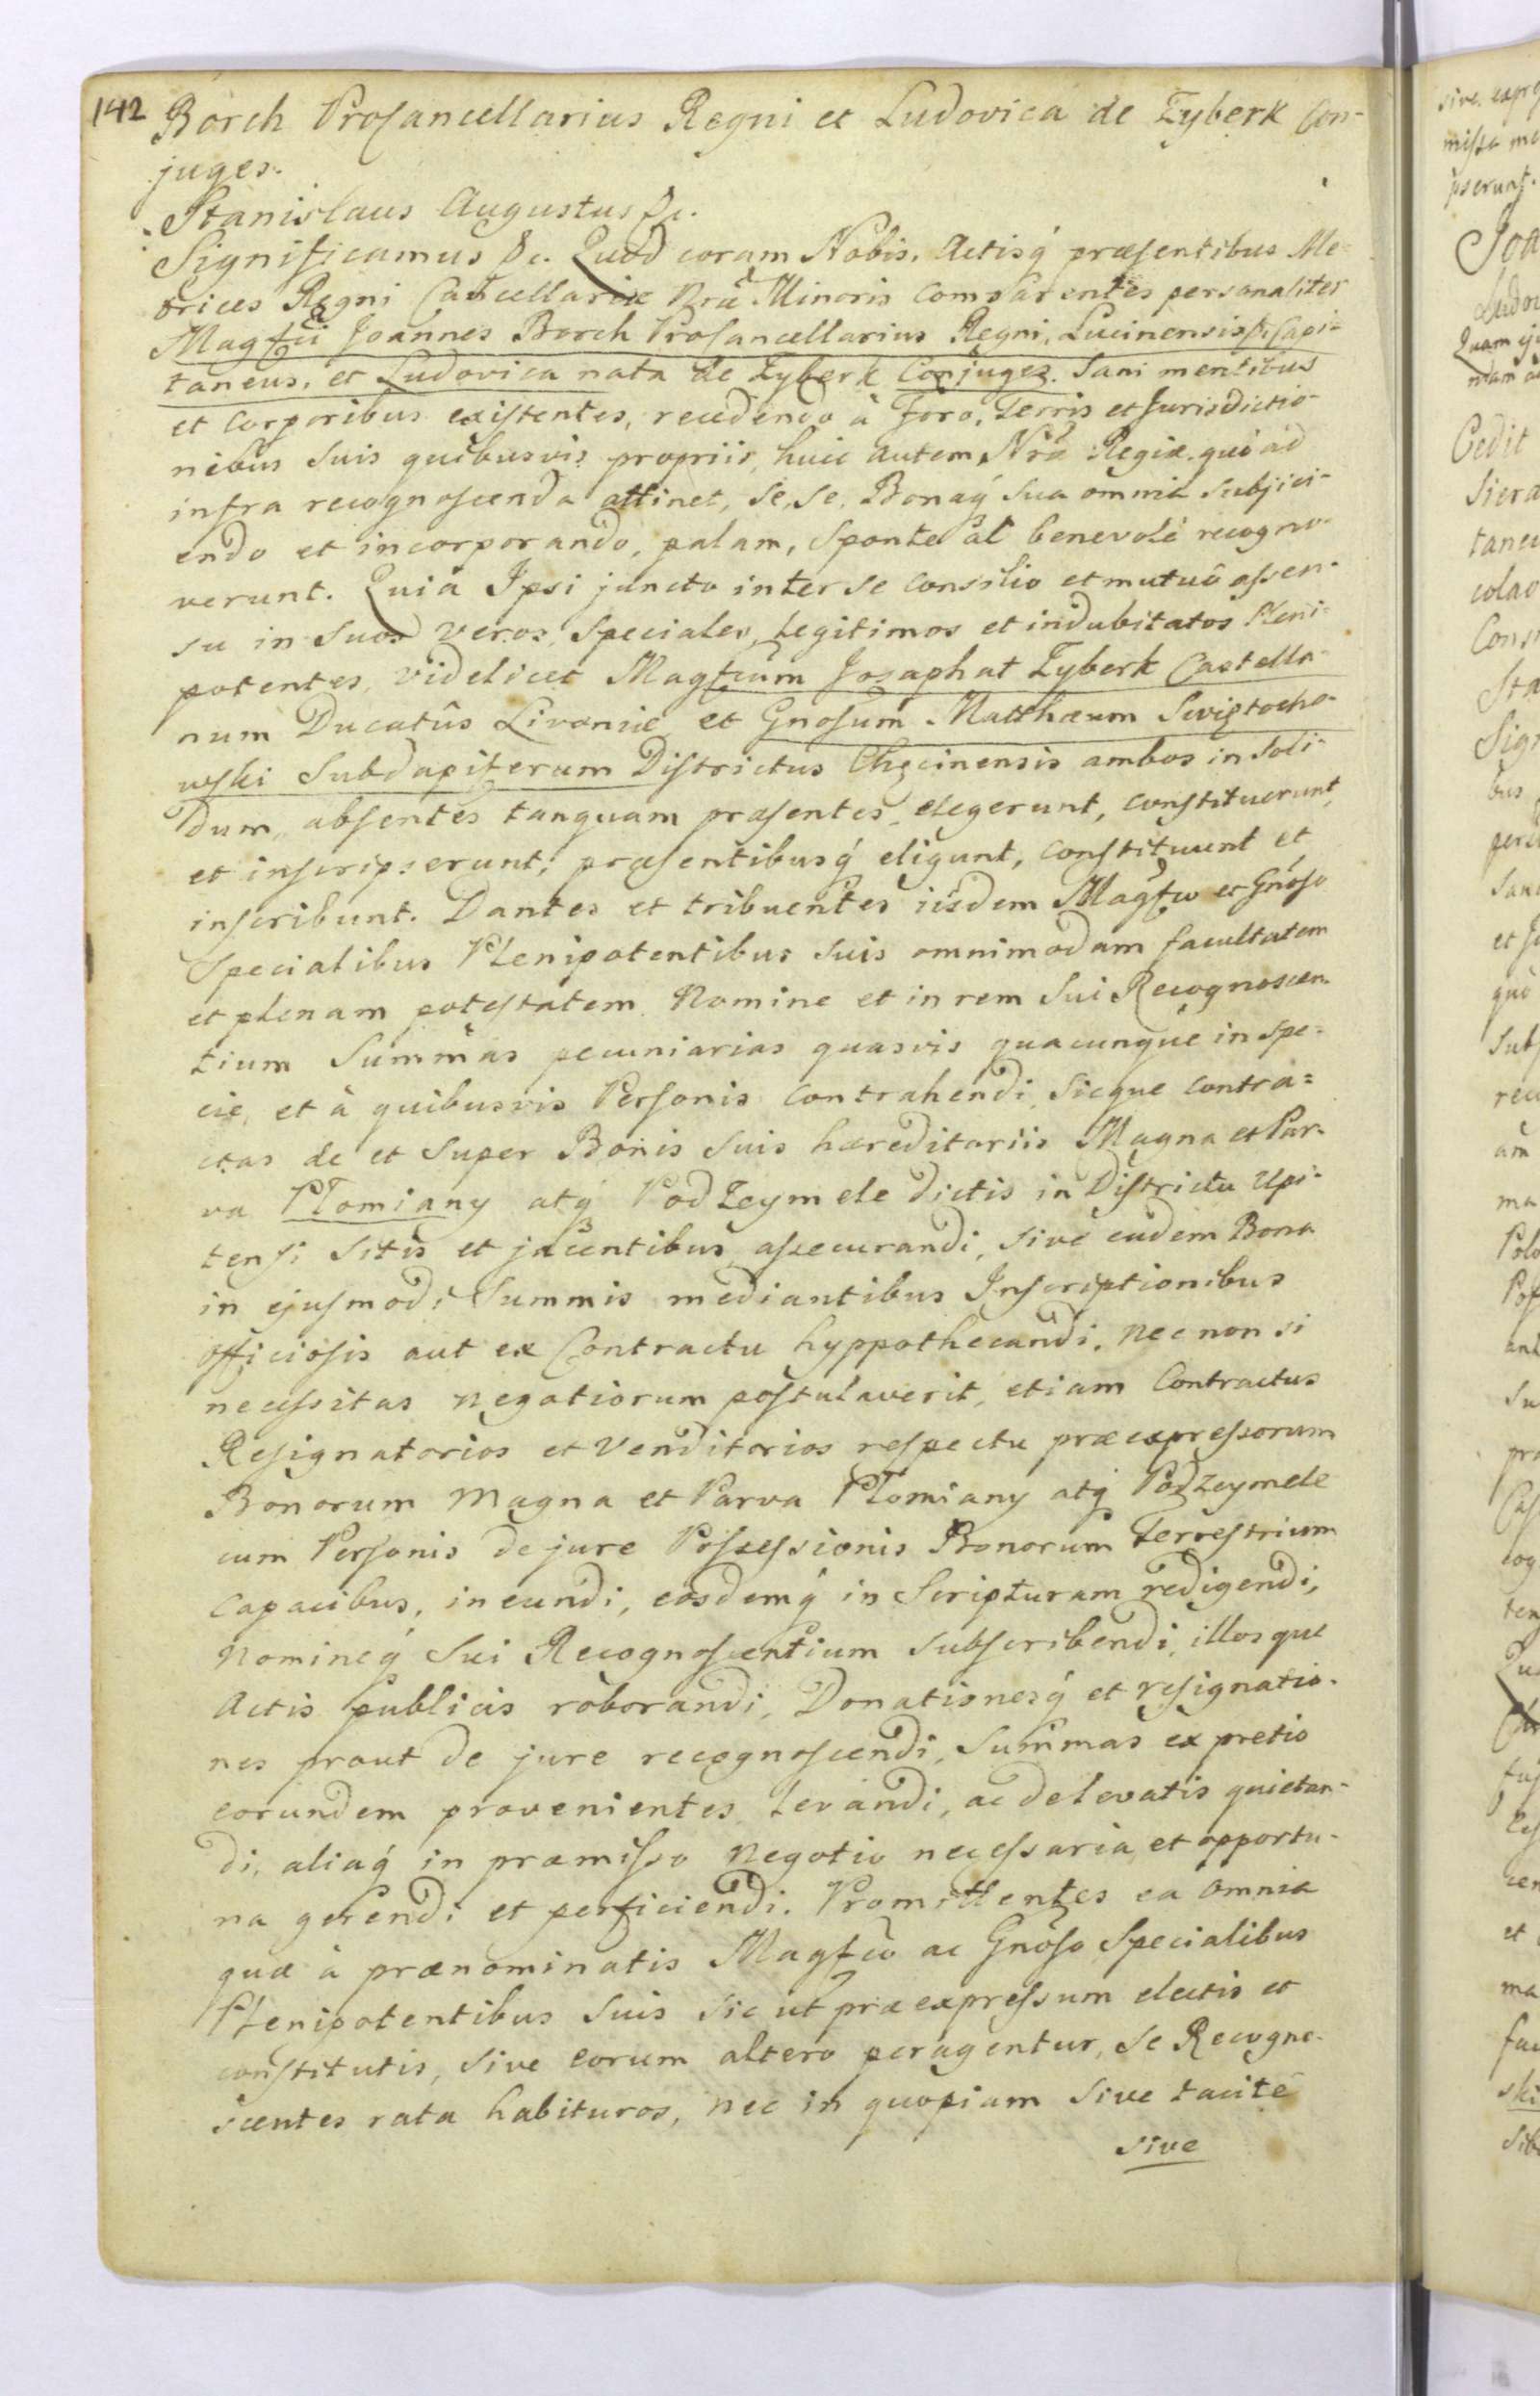 142 Borch Procancellarius Regni et Ludovica de Zyberk Con-
juges.
Stanislaus Augustus &c.
Significamus &c. Quod coram Nobis, Actisq́ præsentibus Me-
trices Regni Cancellariæ Nrã Minoris Comparentes personaliter
Magfci Joannes Borch Procancellarius Regni, Lucinensis &c Capi-
taneus, et Ludovica nata de Zyberk Conjuges. Sani mentibus
et Corporibus existentes, recedendo à Foro, Terris et Jurisdictio-
nibus Suis quibusvis propriis, huic autem Nrã Regiæ, quò ad
infra recognoscenda attinet, Se, Se, Bonaq́ Sua omnia Subjici-
endo et incorporando, palam, Sponte ac benevolè recogno-
verunt. Quia Ipsi juncto inter Se Consilio et mutuô assen-
su in Suos veros, Speciales, Legitimos et indubitatos Pleni-
potentes, videlicet Magfcum Josaphat Zyberk Castella-
num Ducatûs Livoniæ et Gnosum Matthæum Swiętocho-
wski Subdapiferum Districtus Chęcinensis ambos in Soli-
dum, absentes tanquam præsentes, elegerunt, constituerunt,
et inscripserunt, præsentibusq́ eligunt, constituunt et
inscribunt. Dantes et tribuentes iisdem Magfco et Gnoso
Specialibus Plenipotentibus Suis omnimodam facultatem
et plenam potestatem Nomine et in rem Sui Recognoscen-
tium Summas pecuniarias quasvis quacunque in Spe-
cie, et à quibusvis Personis Contrahendi, Sicque contra=
ctas de et Super Bonis Suis hæreditariis Magna et Par-
va Płomiany atq́ PodZeymele dictis in Districtu Upi-
tensi Sitis et jacentibus assecurandi, Sive eadem Bona
in ejusmodi Summis mediantibus Inscriptionibus
officiosis aut ex Contractu hyppothecandi. Nec non si
necessitas negotiorum postulaverit, etiam Contractus
Resignatorios et Venditorios respectu præexpressorum
Bonorum Magna et Parva Płomiany atq́ Podzeymele
cum Personis de jure Possessionis Bonorum Terrestrium
capacibus, ineundi, eosdemq́ in Scripturam redigendi,
Nomineq́ Sui Recognoscentium Subscribendi, illosque
Actis publicis roborandi, Donationesq́ et resignatio-
nes prout de jure recognoscendi, Summas ex pretio
eorundem provenientes levandi, ac de levatis quietan-
di, aliaq́ in præmisso Negotio necessaria et opportu-
na gerendi et perficiendi. Promittentes ea omnia
quæ à prænominatis Magfco ac Gnoso Specialibus
Plenipotentibus Suis Sic ut præexpressum electis et
constitutis, Sive eorum altero peragentur, Se Recogno-
scentes rata habituros, nec in quopiam Sive tacitè
sive